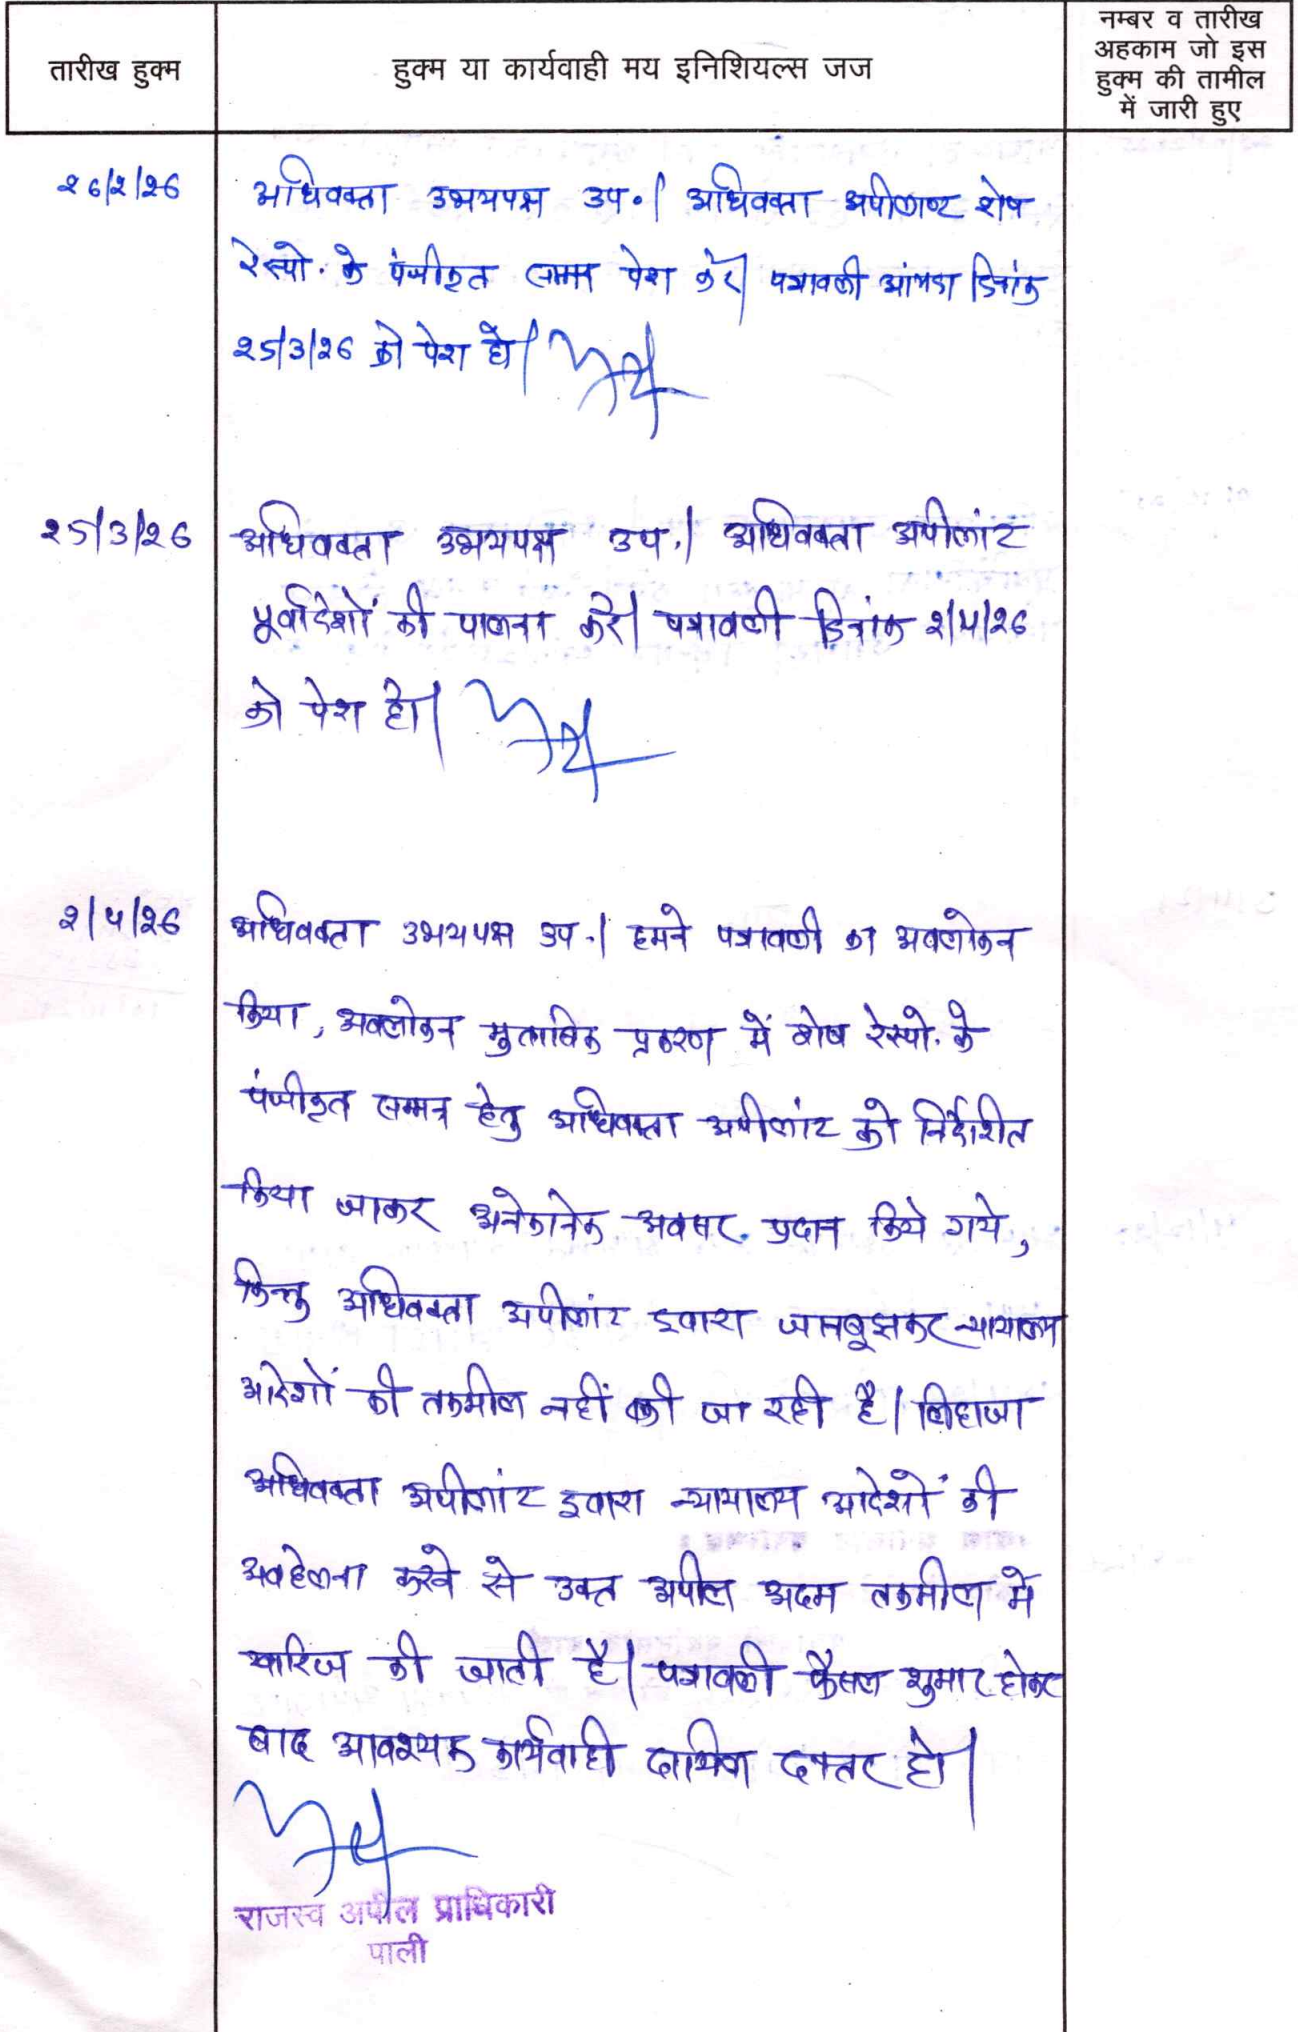 तारीख हुक्म
हुक्म या कार्यवाही मय इनिशियल्स जज
नम्बर व तारीख
अहकाम जो इस
हुक्म की तामील
में जारी हुए
26/2/26
अधिवक्ता उभयपक्ष उप.। अधिवक्ता अपीलाण्ट शेष
रेस्पो. के पंजीकृत सम्मन पेश करें। पत्रावली आंयदा दिनांक
25/3/26 को पेश हो।
25/3/26
अधिवक्ता उभयपक्ष उप.। अधिवक्ता अपीलांट
पूर्वादेशों की पालना करें। पत्रावली दिनांक 2/4/26
को पेश हो।
2/4/26
अधिवक्ता उभयपक्ष उप.। हमने पत्रावली का अवलोकन
किया, अवलोकन मुताबिक प्रकरण में शेष रेस्पो. के
पंजीकृत सम्मन हेतु अधिवक्ता अपीलांट को निर्देशित
किया जाकर अनेकानेक अवसर प्रदान किये गये,
किन्तु अधिवक्ता अपीलांट द्वारा जानबूझकर न्यायालय
आदेशों की तकमील नहीं की जा रही है। लिहाजा
अधिवक्ता अपीलांट द्वारा न्यायालय आदेशों की
अवहेलना करने से उक्त अपील अदम तकमील में
खारिज की जाती है। पत्रावली फैसल शुमार होकर
बाद आवश्यक कार्यवाही दाखिल दफ्तर हो।
राजस्व अपील प्राधिकारी
पाली